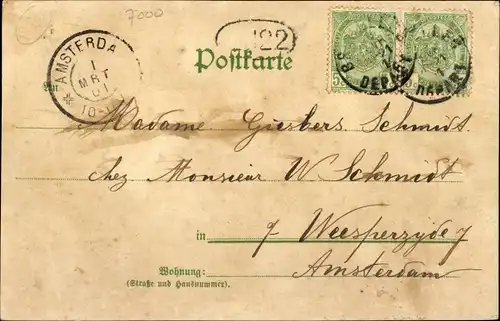 7000
122
AMSTERDA
1
MRT
01
Postkarte
An
DEPART
DEPART
Madame Giesbers Schmidt
chez Monsieur W Schmidt
in
7 Weesperzyde 7
Wohnung:
Amsterdam
(Straße und Hausnummer).